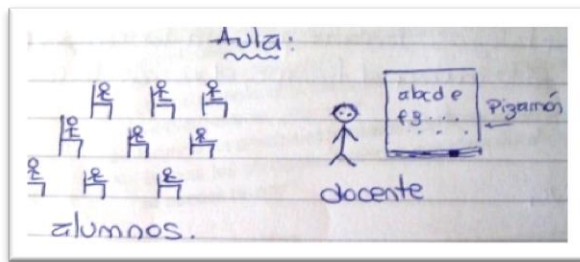 Aula:
abcde
fg...
...
Pizarrón
docente
alumnos.